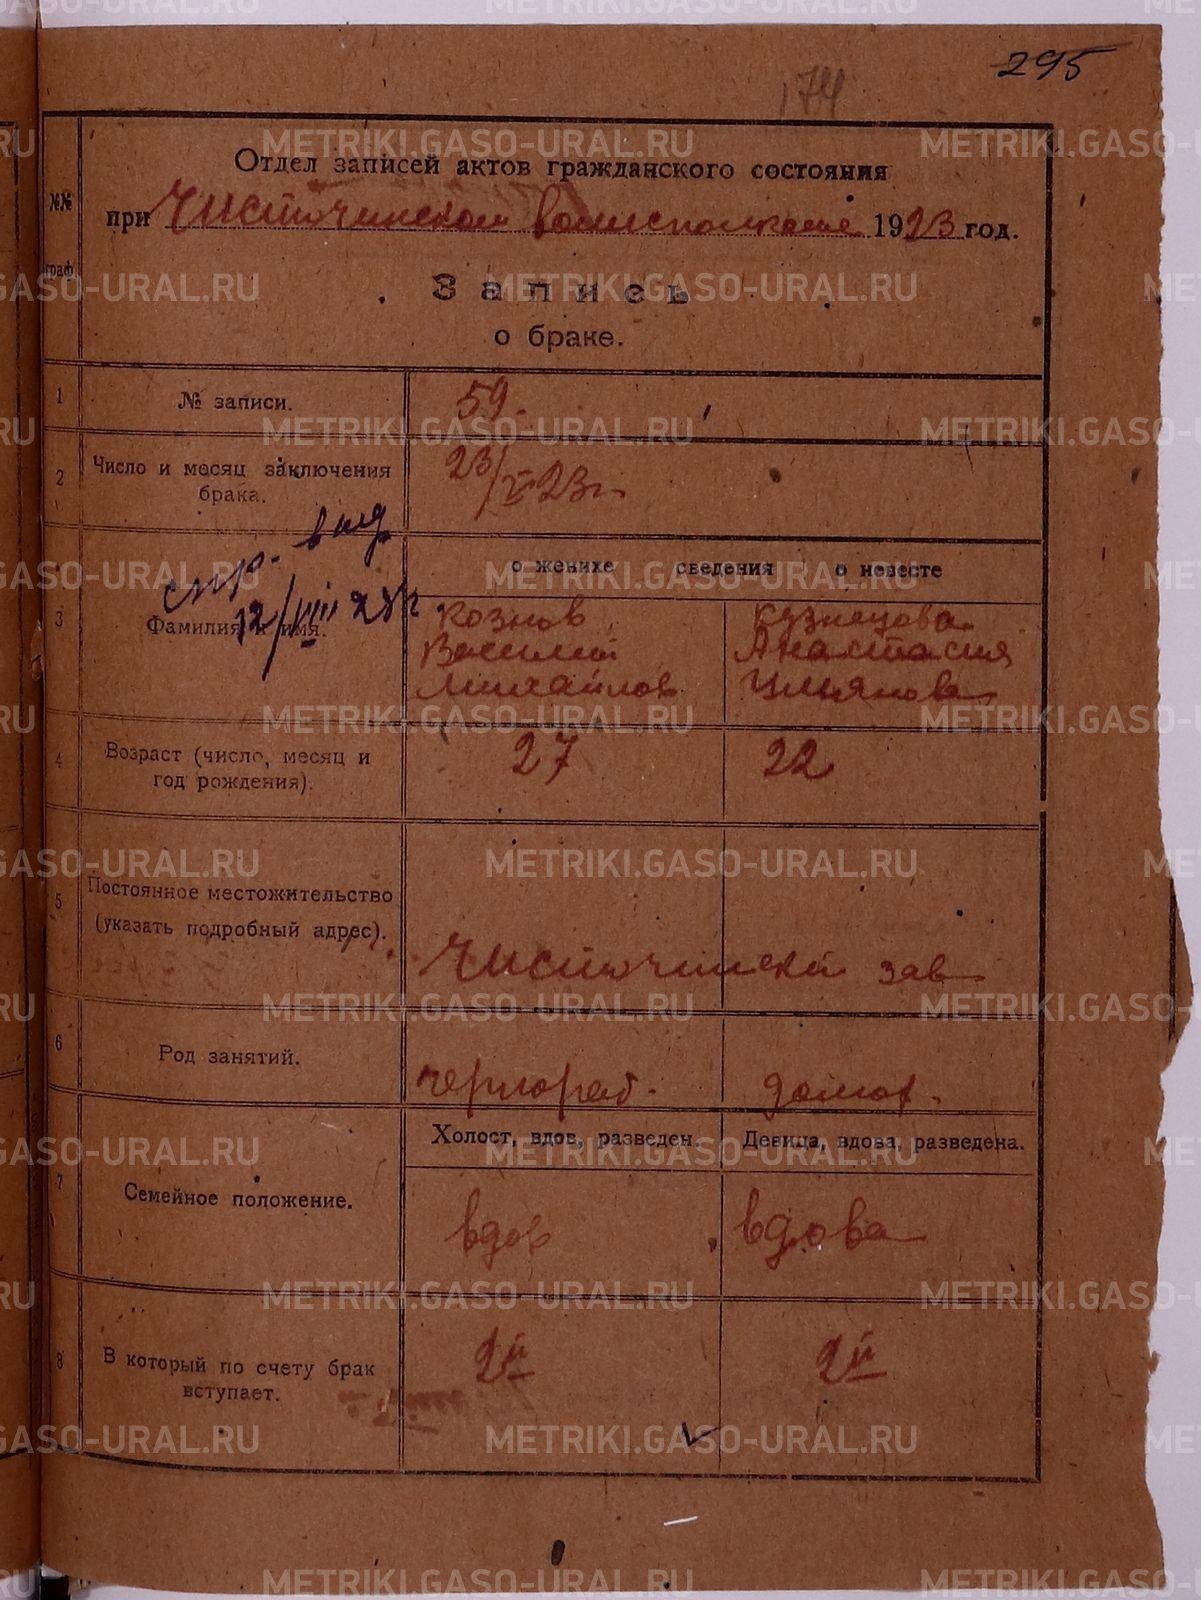 295
174
№№ граф
Отдел записей актов гражданского состояния
при Чусточинском волисполкоме 1923 год.
Запись
о браке.
1 № записи. 59.
2 Число и месяц заключения брака. 23/V 23 г.
спр. выд
12/VIII 28 г
о женихе сведения о невесте
3 Фамилия и имя.
Кознов Кузнецова
Василий Анастасия
Михайлов Ильянова
4 Возраст (число, месяц и год рождения). 27 22
5 Постоянное местожительство
(указать подробный адрес).
зав
6 Род занятий. чернораб. домов.
Холост, вдов, разведен. Девица, вдова, разведена.
7 Семейное положение. вдов вдова
8 В который по счету брак вступает. 2й 2й
METRIKI.GASO-URAL.RU